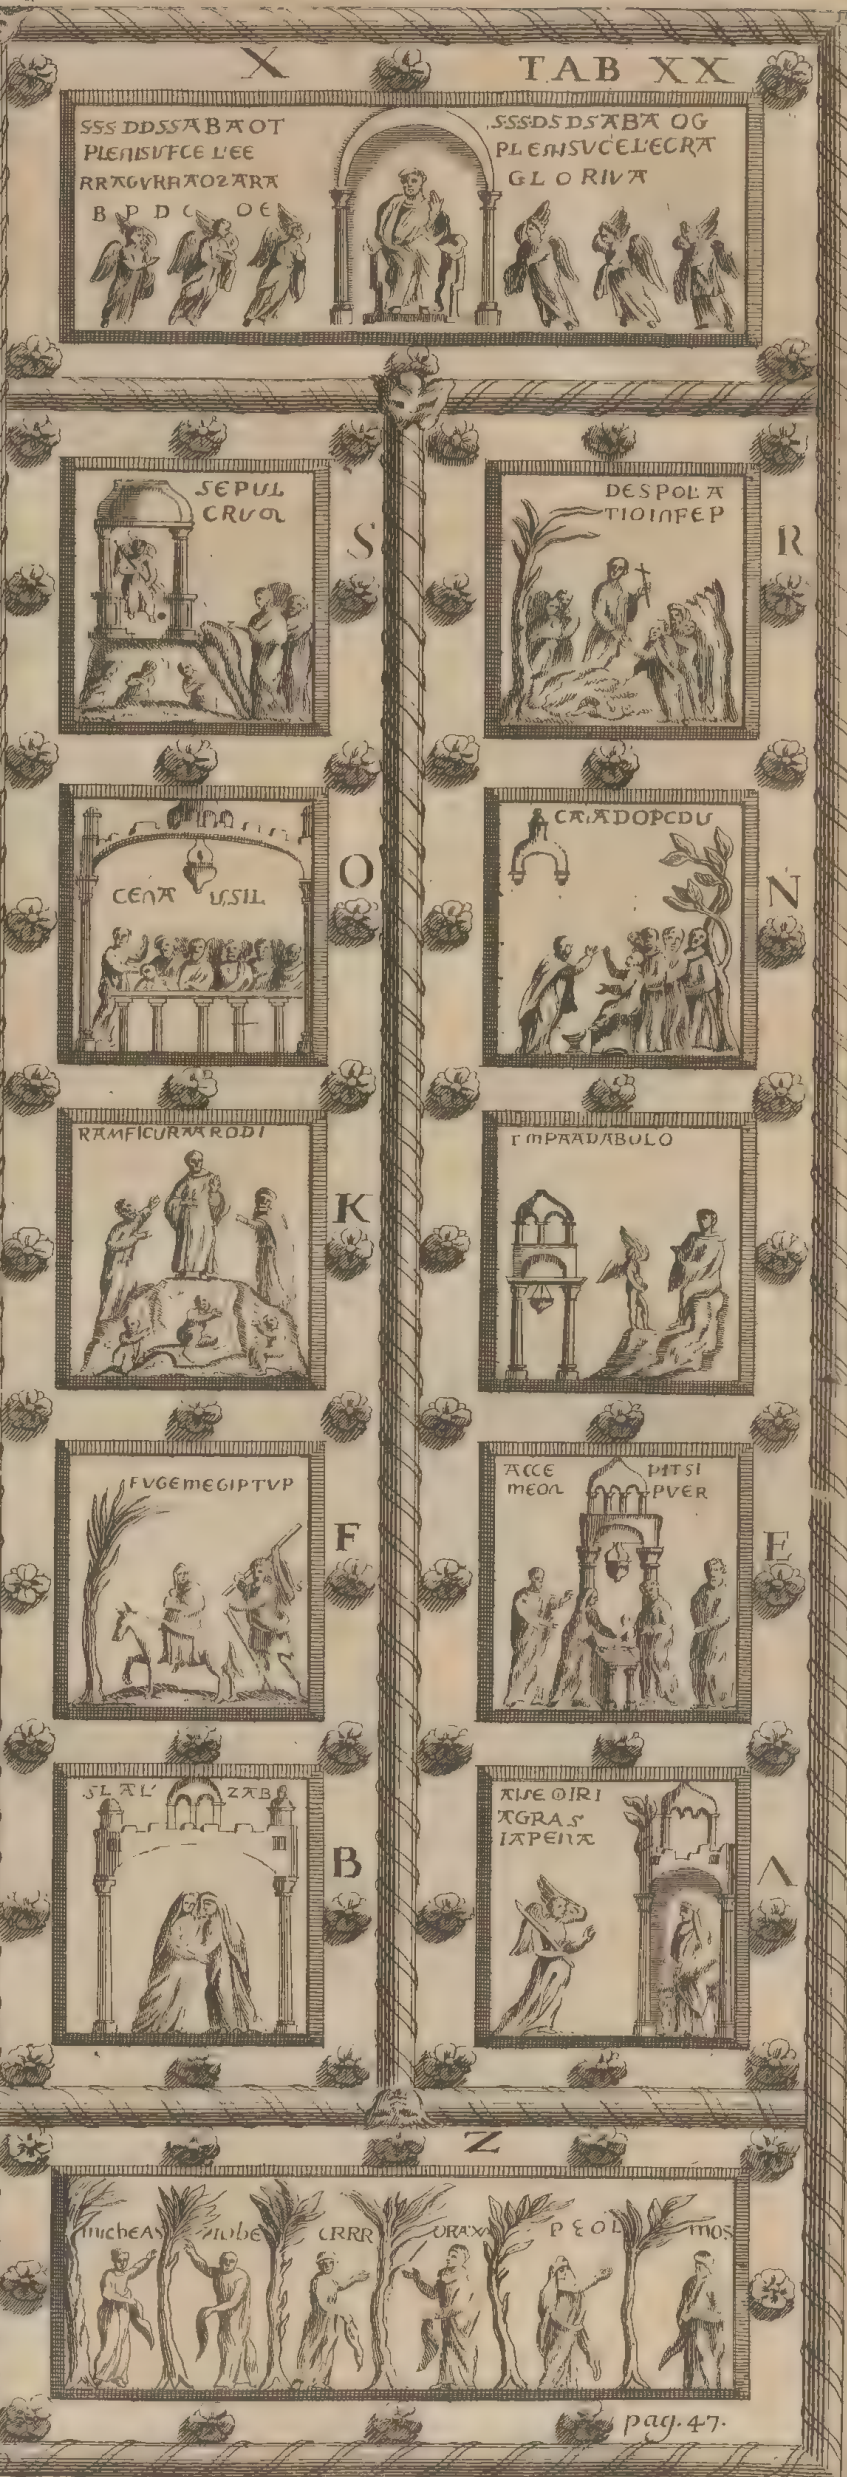 X
TAB XX
SSS DDSSABAOT
PLENISUFCE L'EE
RRAGVRRAOZARA
B P D C OE
SSSDS DSABA OG
PLENSUCELECRA
GLORIVA
SEPUL
CRUM
S
DESPOL'A
TIOINFEP
R
CENA USSIL
O
CAIADOPCDU
N
RAMFICURAARODI
K
TMPAADABULO
FVGEMEGIPTVP
F
ACCE PITSI
MEON PVER
E
SL AL' ZAB
B
AISE OIRI
AGRAS
IAPENA
Λ
Z
MICHEAS
CRRR
URAXA
PEOL
MOS
pag. 47.